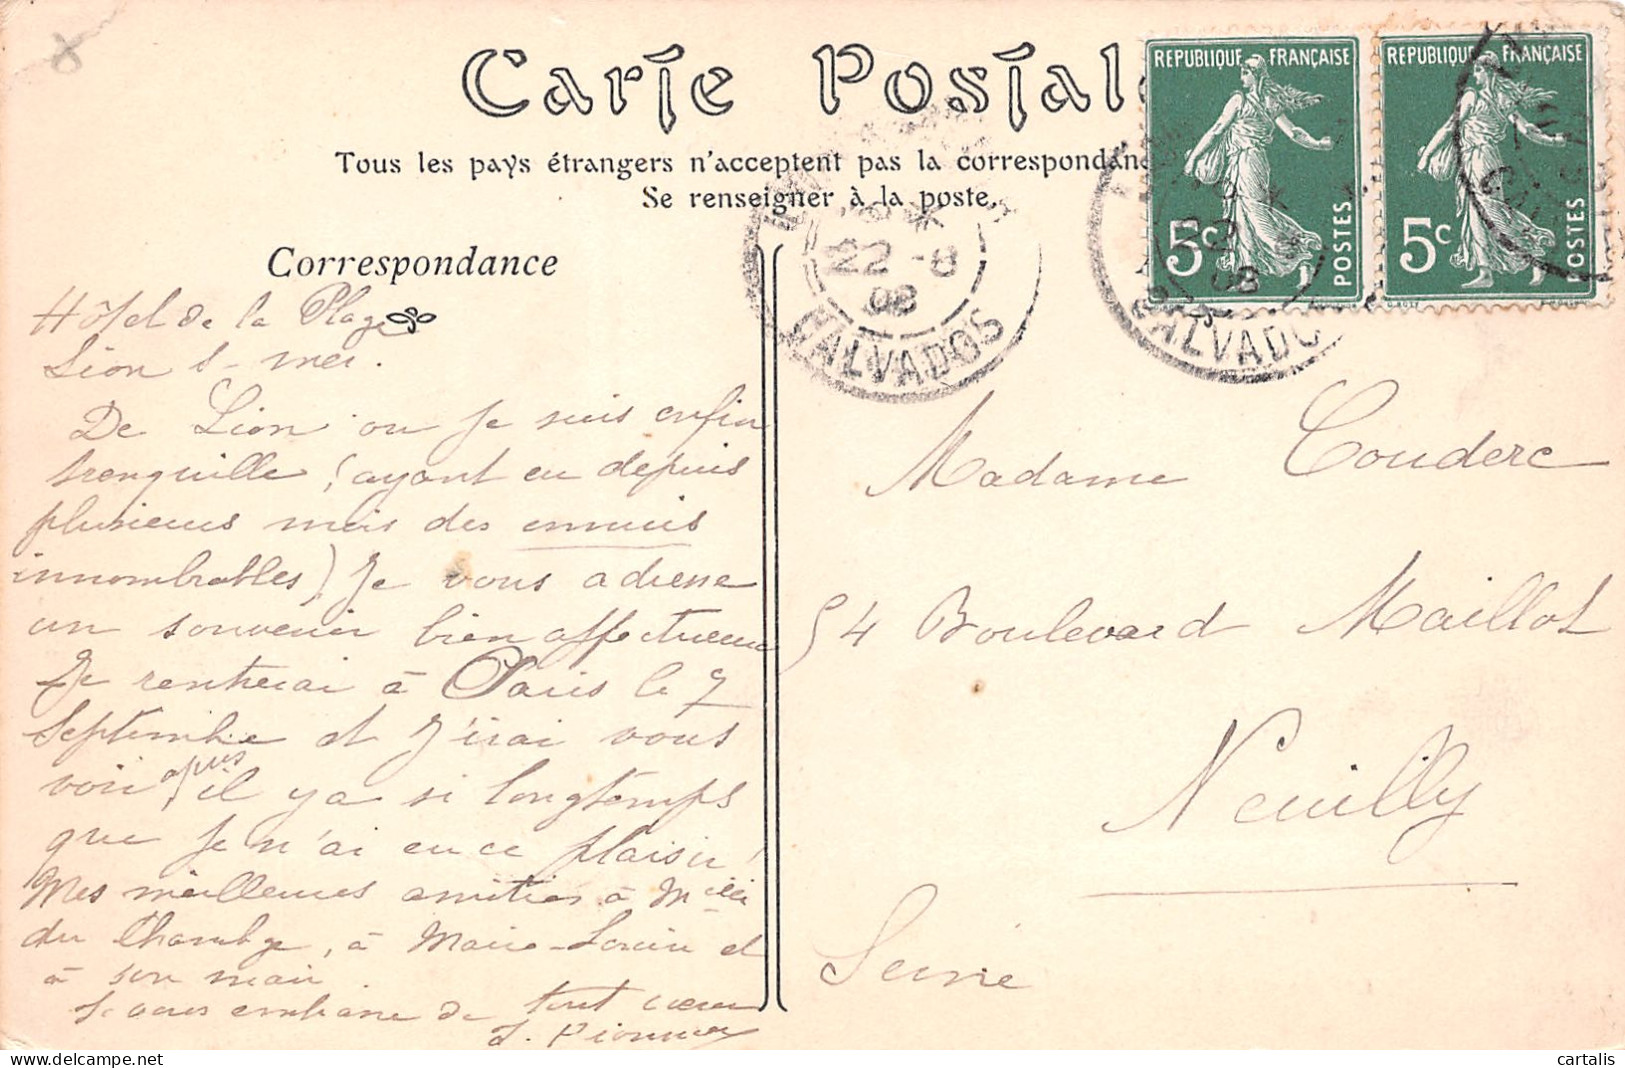 Carte Postale
REPUBLIQUE FRANÇAISE
REPUBLIQUE FRANÇAISE
Tous les pays étrangers n'acceptent pas la correspondan
Se renseigner à la poste.
5c POSTES
5c POSTES
22 -8
08
CALVADOS
08
CALVADOS
Correspondance
Hôtel de la Plage
Lion s-mer.
De Lion ou je suis enfin
trenquille (ayant eu depuis
plusieurs mois des ennuis
innombrables) Je vous adresse
un souvenir bien affectueux
Je rentrerai à Paris le 7
Septembre et j'irai vous
voir il y a si longtemps
que je n'ai eu ce plaisir!
Mes meilleures amitiés à
du , à et
à son mari
Je vous embrasse de tout coeur
Madame Couderc
54 Boulevard Maillot
Neuilly
Seine
cartalis